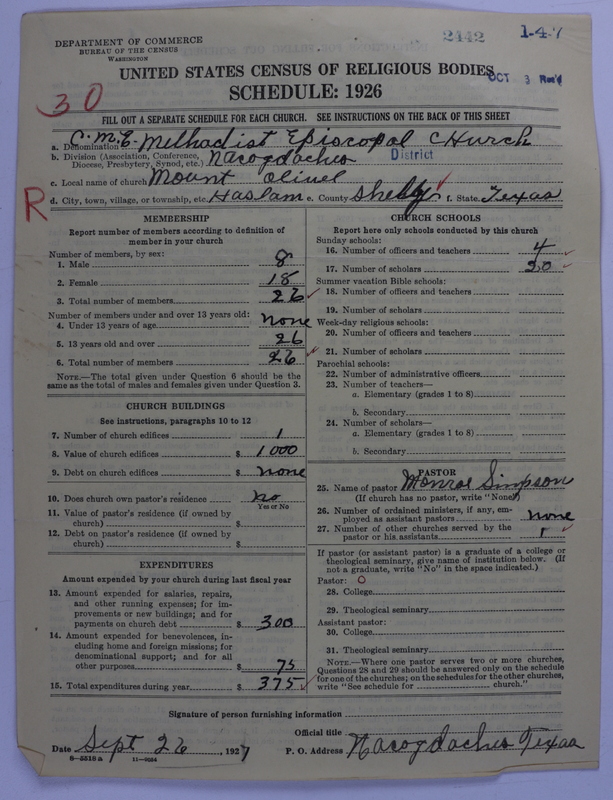 DEPARTMENT OF COMMERCE
BUREAU OF THE CENSUS
WASHINGTON
2442
1-4-7
UNITED STATES CENSUS OF RELIGIOUS BODIES
OCT 3 Rec'd
SCHEDULE: 1926
30
FILL OUT A SEPARATE SCHEDULE FOR EACH CHURCH. SEE INSTRUCTIONS ON THE BACK OF THIS SHEET
a. Denomination C.M.E. Methadist Episcopal Church
b. Division (Association, Conference, Diocese, Presbytery, Synod, etc.) Nacogdaches District
c. Local name of church Mount Olivel
R
d. City, town, village, or township, etc. Haslam e. County Shelby f. State Texas
MEMBERSHIP
Report number of members according to definition of
member in your church
Number of members, by sex:
1. Male 8
2. Female 18
3. Total number of members 26
Number of members under and over 13 years old:
4. Under 13 years of age none
5. 13 years old and over 26
6. Total number of members 26
NOTE.—The total given under Question 6 should be the
same as the total of males and females given under Question 3.
CHURCH BUILDINGS
See instructions, paragraphs 10 to 12
7. Number of church edifices 1
8. Value of church edifices $ 1000
9. Debt on church edifices $ none
10. Does church own pastor's residence no
Yes or No
11. Value of pastor's residence (if owned by
church) $
12. Debt on pastor's residence (if owned by
church) $
EXPENDITURES
Amount expended by your church during last fiscal year
13. Amount expended for salaries, repairs,
and other running expenses; for im-
provements or new buildings; and for
payments on church debt $ 300
14. Amount expended for benevolences, in-
cluding home and foreign missions; for
denominational support; and for all
other purposes $ 75
15. Total expenditures during year $ 375
CHURCH SCHOOLS
Report here only schools conducted by this church
Sunday schools:
16. Number of officers and teachers 4
17. Number of scholars 20
Summer vacation Bible schools:
18. Number of officers and teachers
19. Number of scholars
Week-day religious schools:
20. Number of officers and teachers
21. Number of scholars
Parochial schools:
22. Number of administrative officers
23. Number of teachers—
a. Elementary (grades 1 to 8)
b. Secondary
24. Number of scholars—
a. Elementary (grades 1 to 8)
b. Secondary
PASTOR
25. Name of pastor Monroe Simpson
(If church has no pastor, write "None")
26. Number of ordained ministers, if any, em-
ployed as assistant pastors none
27. Number of other churches served by the
pastor or his assistants 1
If pastor (or assistant pastor) is a graduate of a college or
theological seminary, give name of institution below. (If
not a graduate, write "No" in the space indicated.)
Pastor: O
28. College
29. Theological seminary
Assistant pastor:
30. College
31. Theological seminary
NOTE.—Where one pastor serves two or more churches,
Questions 28 and 29 should be answered only on the schedule
for one of the churches; on the schedules for the other churches,
write "See schedule for church."
Signature of person furnishing information
Official title
Date Sept 26, 1927
P. O. Address Nacogdaches Texas
8-5518 a 11-9024